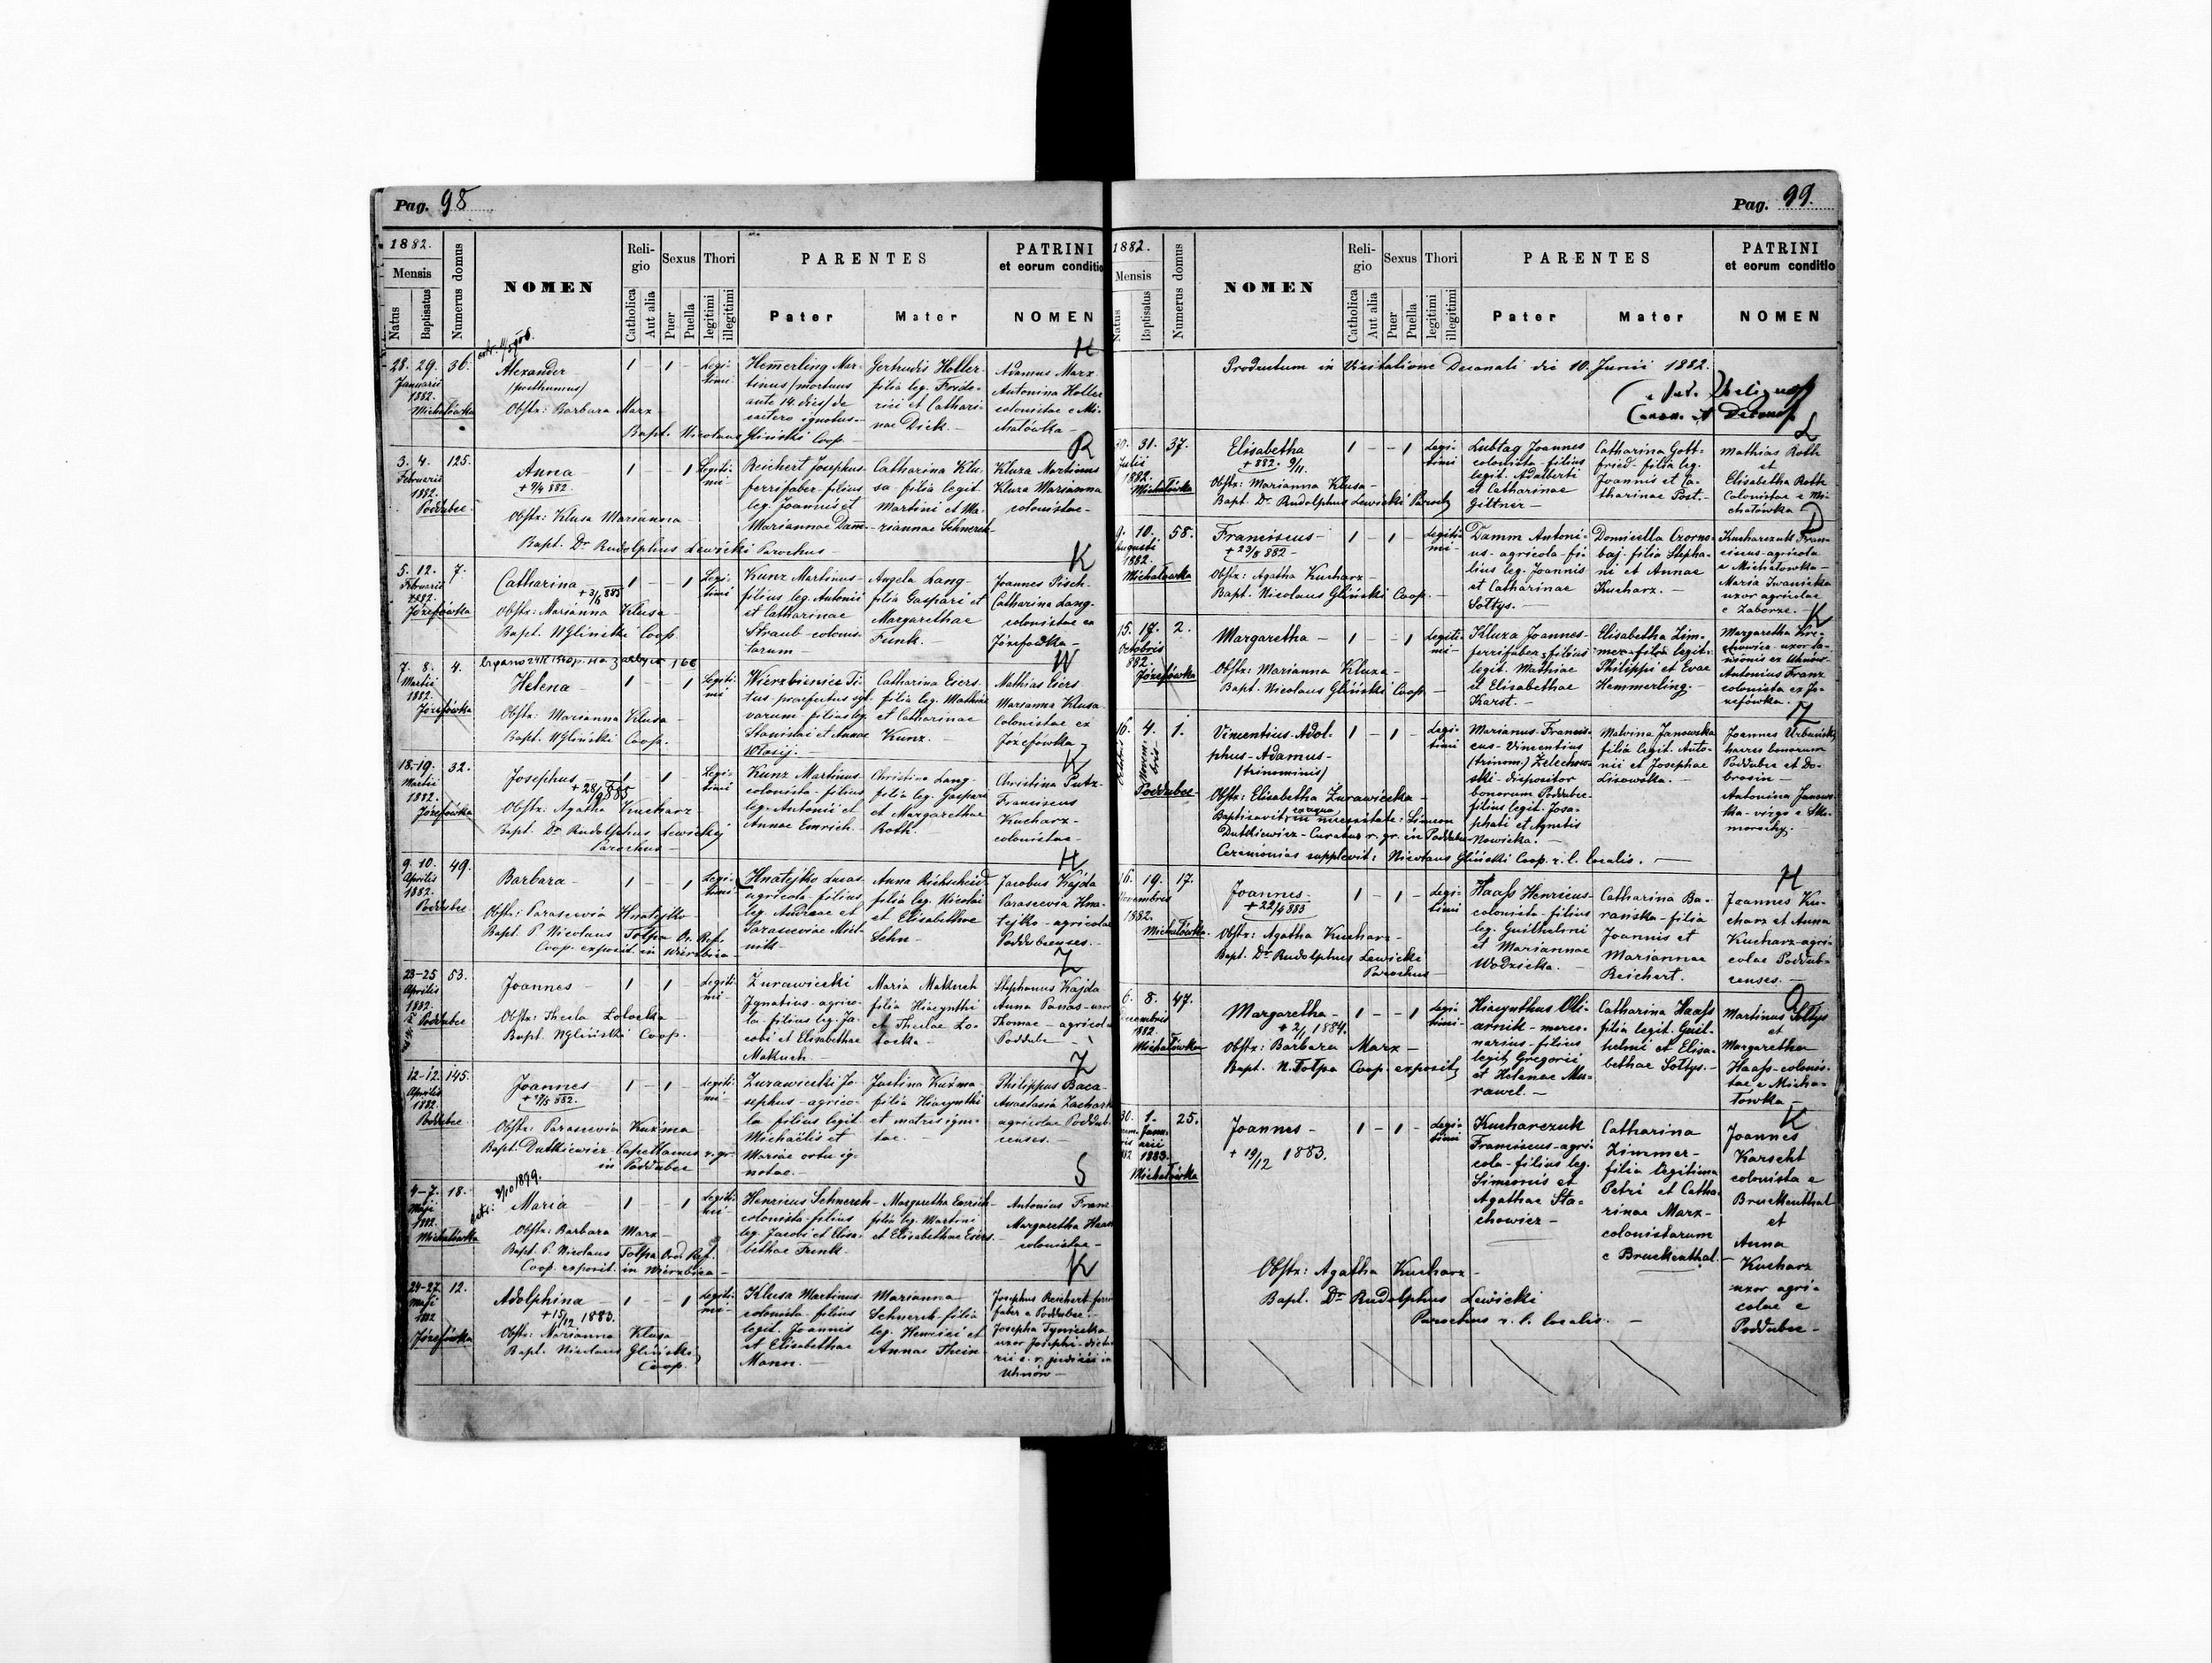 Pag. 98
1882.
Mensis
Natus
Baptisatus
Numerus domus
NOMEN
Religio
Catholica
Aut alia
Sexus
Puer
Puella
Thori
legitimi
illegitimi
PARENTES
Pater
Mater
PATRINI
et eorum conditio
NOMEN
H
28. 29. 36.
Januarii
1882.
Michałówka
Alexander
/posthumus/
Obstx: Barbara Marx
Bapt. Nicolaus Gliński Coop.
1 – 1 –
Legi-
timi
Hemerling Mar-
tinus /mortuus
ante 14. dies/ de
caetero ignotus
Gertrudis Holler
filia leg. Fride-
rici et Cathari-
nae Dick.
Adamus Marx
Antonina Holler
colonistae e Mi-
chałówka
R
3. 4. 125.
Februarii
1882.
Poddubce
Anna
+ 9/4 882.
Obstx: Klusa Marianna
Bapt. Dr Rudolphus Lewicki Parochus
1 – – 1
Legiti-
mi
Reichert Josephus
ferrifaber filius
leg. Joannis et
Mariannae Damm
Catharina Klu-
sa filia legit.
Martini et Ma-
riannae Schnerch
Kluza Martinus
Kluza Marianna
colonistae
K
5. 12. 7.
Februarii
1882.
Józefówka
Catharina
Obstx: Marianna Klusa
Bapt. NGliński Coop.
1 – – 1
Legi-
timi
Kunz Martinus
filius leg. Antonii
et Catharinae
Straub colonis-
tarum
Angela Lang
filia Gaspari et
Margarethae
Funk.
Joannes Pisch
Catharina Lang
colonistae ex
Józefówka
W
7. 8. 4.
Martii
1882.
Józefówka
Helena
Obstx: Marianna Klusa
Bapt. NGliński Coop.
1 – – 1
Legiti-
mi
Wierzbieniec Ti-
tus praefectus syl-
varum filius leg.
Stanislai et Annae
Catharina Esers
filia leg. Mathiae
et Catharinae
Kunz.
Mathias Esers
Marianna Klusa
Colonistae ex
Józefówka
K
18–19. 32.
Martii
1882.
Józefówka
Josephus
Obstx. Agatha Kucharz
Bapt. Dr Rudolphus Lewicki
Parochus
1 – 1 –
Legi-
timi
Kunz Martinus
colonista filius
leg. Antonii et
Annae Emrich.
Christina Lang
filia leg. Gaspari
et Margarethae
Roth.
Christina Putz
Franciscus
Kucharz
colonistae
H
9. 10. 49.
Aprilis
1882.
Poddubce
Barbara
Obstx: Parascevia Hnatejko
Bapt. P. Nicolaus Tołpa Or. Ref.
Coop. exposit. in Wierzbica
1 – – 1
Legi-
timi
Hnatejko Lucas
agricola filius
leg. Andreae et
Parasceviae
Anna Richscheid
filia leg. Nicolai
et Elisabethae
Sehn
Jacobus Kajda
Parascevia Hna-
tejko agricolae
Poddubcenses.
Z
23–25 53.
Aprilis
1882.
Poddubce
Joannes
Obstx: Thecla Łotocka
Bapt. NGliński Coop.
1 – 1 –
Legiti-
mi
Zurawiecki
Ignatius agrico-
la filius leg. Ja-
cobi et Elisabethae
Makuch
Maria Makuch
filia Hiacynthi
et Theclae Ło-
tocka
Stephanus Kajda
Anna Panas uxor
Thomae agricolae
Poddube
Z
12–12. 145.
Aprilis
1882
Poddubce
Joannes
Obstx: Parascevia Kuzma
Bapt. Dutkiewicz Capellanus r. gr.
in Poddubce
1 – 1 –
Legiti-
mi
Zurawiecki Jo-
sephus agrico-
la filius legit.
Michaëlis et
Mariae ortu ig-
notae.
Justina Kuźma
filia Hiacynthi
et matris igno-
tae.
Philippus Baca
Anastasia Zachark
agricolae Poddub-
censes.
S
4–7. 18.
Maji
1882.
Michałówka
Maria
Obstx: Barbara Marx
Bapt. P. Nicolaus Tołpa Ord. Ref.
Coop. exposit. in Wierzbica
1 – – 1
Legiti-
mi
Henricus Schnerch
colonista filius
leg. Jacobi et Elisa-
bethae Frink
Margaretha Emrich
filia leg. Martini
et Elisabethae Esers.
Antonius Franz
Margaretha Haas
colonistae
K
24–27. 12.
Maji
1882
Józefówka
Adolphina
+ 15/12 1883.
Obstx: Marianna Klusa
Bapt. Nicolaus Gliński
Coop.
1 – – 1
Legiti-
mi
Klusa Martinus
colonista filius
legit. Joannis
et Elisabethae
Mann.
Marianna
Schnerch filia
leg. Henrici et
Annae Thein
Josephus Reichert ferri
faber e Poddubce.
Josepha Tyniecka
uxor Josephi
judicii in
Uhnów
Pag. 99.
1882.
Mensis
Natus
Baptisatus
Numerus domus
NOMEN
Religio
Catholica
Aut alia
Sexus
Puer
Puella
Thori
legitimi
illegitimi
PARENTES
Pater
Mater
PATRINI
et eorum conditio
NOMEN
Productum in Visitatione Decanali die 10. Junii 1882.
Canon. et Decanus
L
31. 37.
Julii
1882.
Michałówka
Elisabetha
+ 882. 9/11.
Obstx: Marianna Klusa
Bapt. Dr Rudolphus Lewicki Paroch
1 – – 1
Legi-
timi
Lubtag Joannes
colonista filius
legit. Adalberti
et Catharinae
Giltner
Catharina Gott-
fried filia leg.
Joannis et Ca-
tharinae Post.
Mathias Roth
et
Elisabetha Roth
Colonistae e Mi-
chałówka
D
9. 10. 58.
Augusti
1882.
Michałówka
Franciscus
+ 23/8 882
Obstx: Agatha Kucharz
Bapt. Nicolaus Gliński Coop.
1 – 1 –
Legiti-
mi
Damm Antoni-
us agricola fi-
lius leg. Joannis
et Catharinae
Sołtys.
Domicella Czorno-
baj filia Stepha-
ni et Annae
Kucharz.
Kucharzuk Fran-
ciscus agricola
e Michałówka
Maria Iwanicka
uxor agricolae
e Zaborze.
K
15. 17. 2.
Octobris
882.
Józefówka
Margaretha
Obstx: Marianna Kluza
Bapt. Nicolaus Gliński Coop
1 – – 1
Legiti-
mi
Kluza Joannes
ferrifaber filius
legit. Mathiae
et Elisabethae
Karst.
Elisabetha Zim-
mer filia legit.
Philippi et Evae
Hemmerling.
Margaretha
uxor
ex Uhnów
Antonius Franz
colonista ex Jó-
zefówka.
Z
16. 4. 1.
Octobris
Novem-
bris
Poddubce
Vincentius Adol-
phus Adamus
/trinominis/
Obstx: Elisabetha Zurawiecka
Baptisavit ex aqua in necessitate: Simeon
Dutkiewicz Curatus r. gr. in Poddubce
Ceremonias supplevit: Nicolaus Gliński Coop. r. l. localis.
1 – 1 –
Legi-
timi
Marianus Francis-
cus Vincentius
(trinom.) Zelechow-
ski dispositor
bonorum Poddubce
filius legit. Josa-
phati et Agnetis
Nowicka.
Malvina Janowska
filia legit. Anto-
nii et Josephae
Lisowska.
Joannes Urbański
haeres bonorum
Poddubce et Do-
brosin
Antonina Janow-
ska virgo e Ska-
morochy.
H
16. 19. 17.
Novembris
1882.
Michałówka.
Joannes
+ 22/4 883
Obstx: Agatha Kucharz
Bapt. Dr Rudolphus Lewicki
Parochus
1 – 1 –
Legi-
timi
Haass Henricus
colonista filius
leg. Guilhelmi
et Mariannae
Wodzicka.
Catharina Ba-
rańska filia
Joannis et
Mariannae
Reichert.
Joannes Ku-
charz et Anna
Kucharz agri-
colae Poddub-
censes.
O
6. 8. 47.
Decembris
1882.
Michałówka
Margaretha
+ 2/1 1884.
Obstx: Barbara Marx
Bapt. N. Tołpa Coop. exposit.
1 – – 1
Legi-
timi
Hiacynthus Oli-
arnik merce-
narius filius
legit. Gregorii
et Helenae Mu-
rawel.
Catharina Haass
filia legit. Guil-
helmi et Elisa-
bethae Sołtys.
Martinus Sołtys
et
Margaretha
Haass colonis-
tae e Micha-
łówka
K
30. 1. 25.
Janu-
arii
1883.
Michałówka
Joannes
+ 19/12 1883.
1 – 1 –
Legi-
timi
Kucharczuk
Franciscus agri-
cola filius leg.
Simeonis et
Agathae Sta-
chowicz
Catharina
Zimmer
filia legitima
Petri et Catha-
rinae Marx
colonistarum
e Bruckenthal
Joannes
Karscht
colonista e
Bruckenthal
et
Anna
Kucharz
uxor agri-
colae e
Poddubce
Obstx: Agatha Kucharz
Bapt. Dr Rudolphus Lewicki
Parochus r. l. localis.